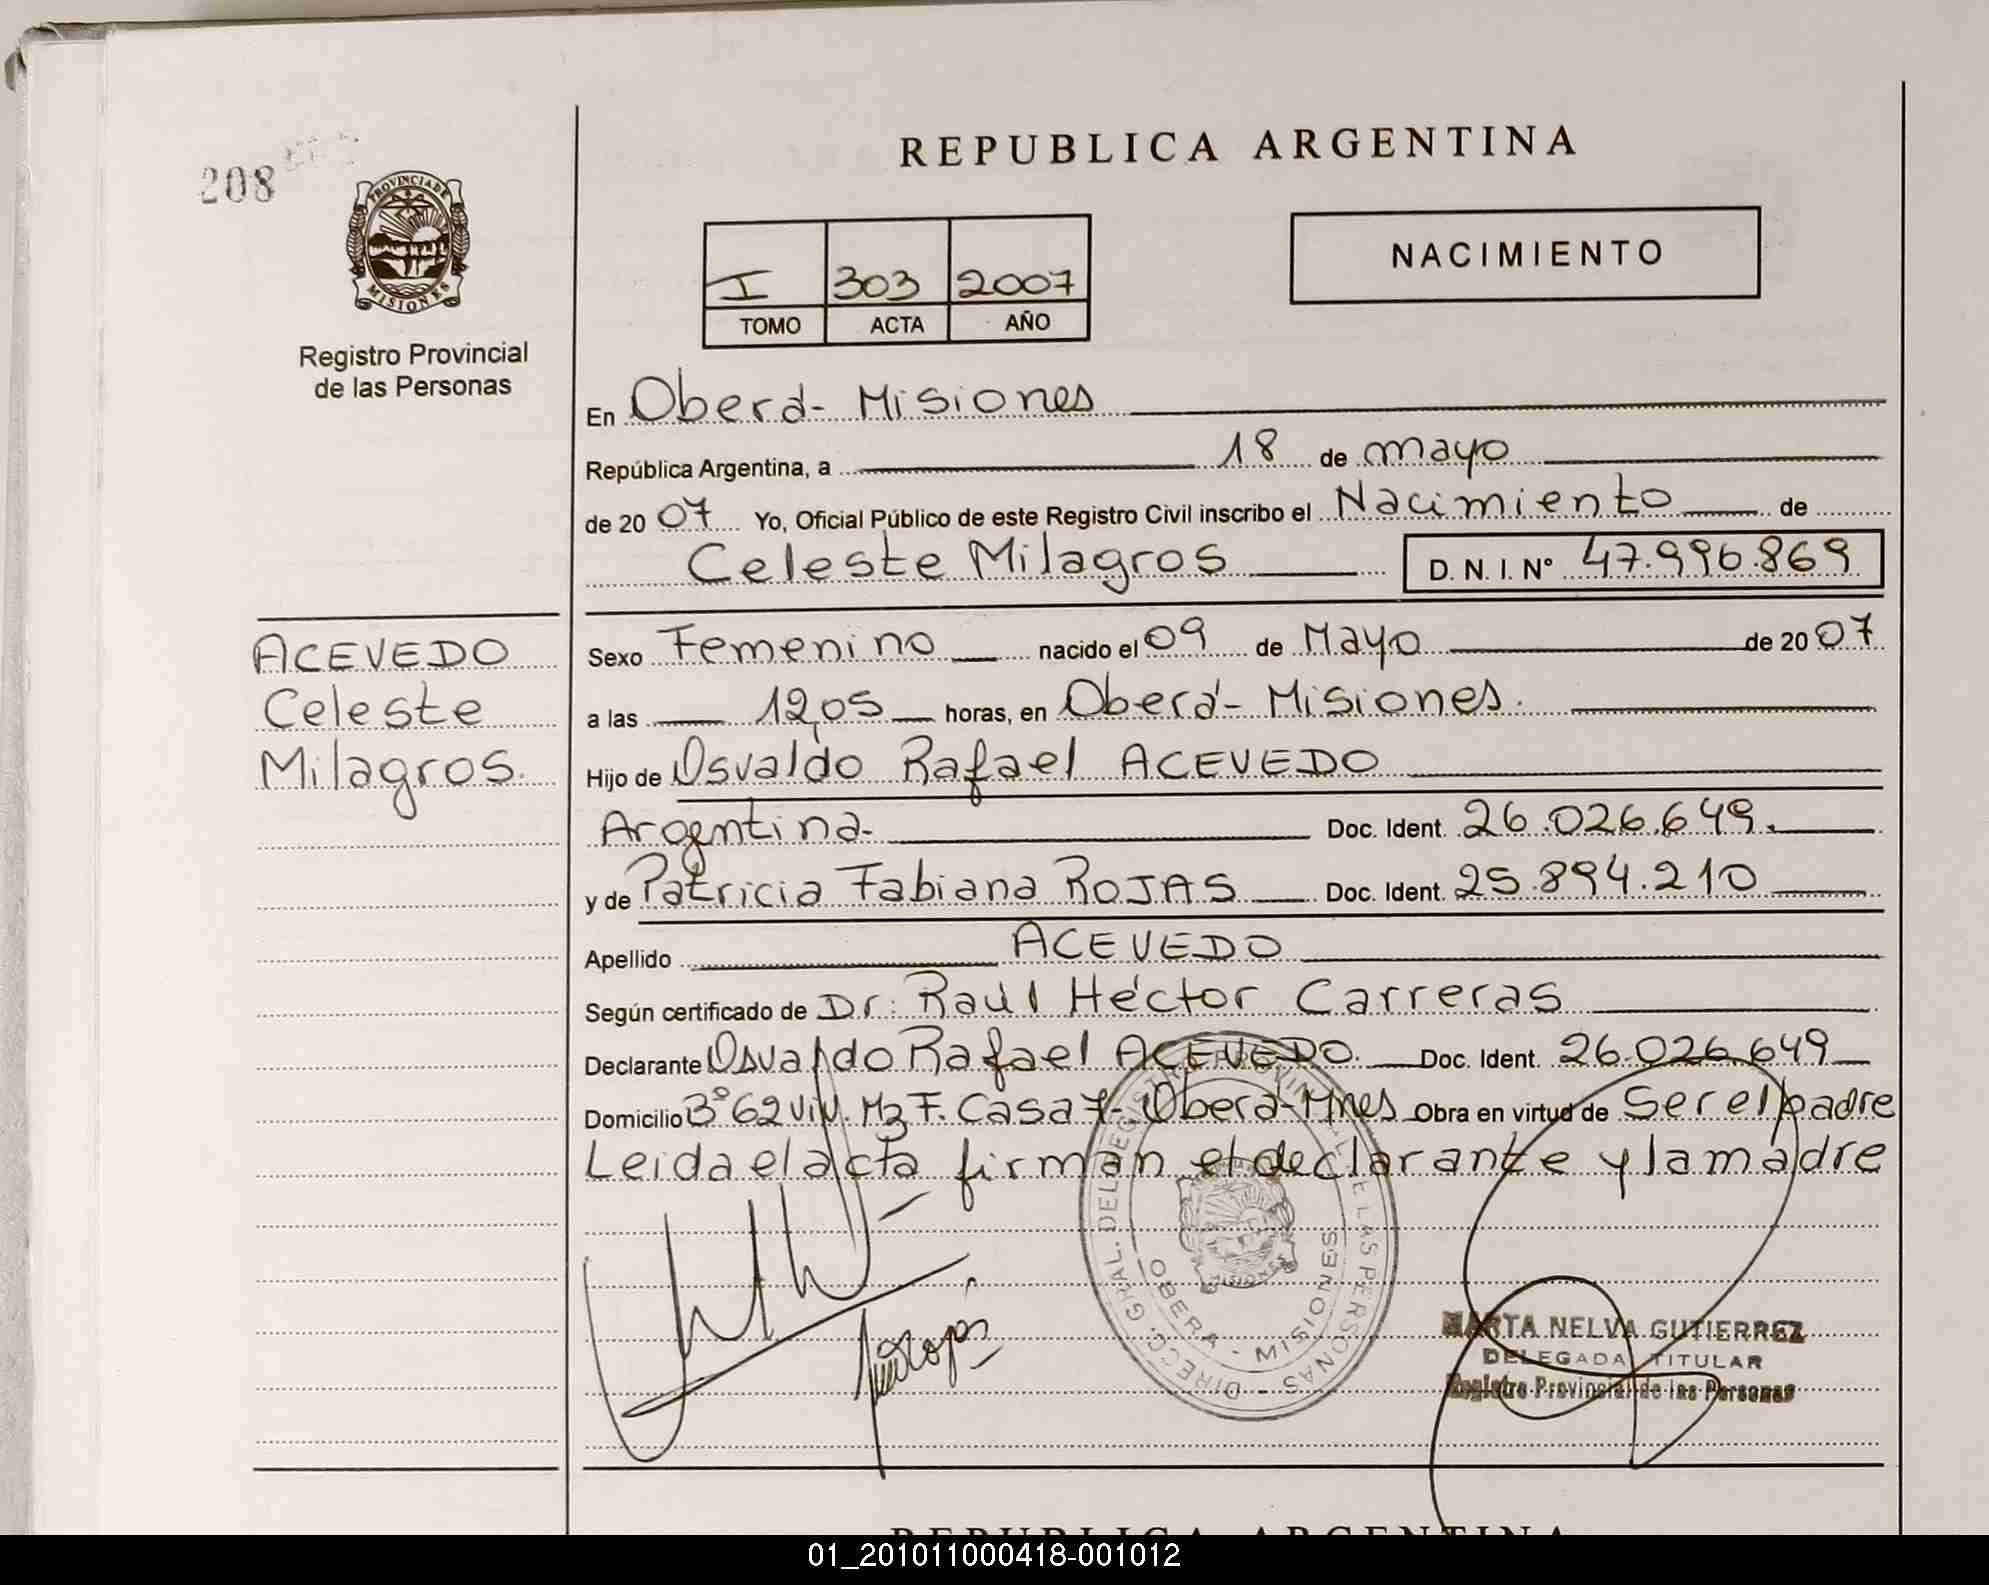 208
PROVINCIA DE
MISIONES
Registro Provincial
de las Personas
REPUBLICA ARGENTINA
I 303 2007
TOMO ACTA AÑO
NACIMIENTO
En Oberá- Misiones
República Argentina, a 18 de mayo
de 20 07 Yo, Oficial Público de este Registro Civil inscribo el Nacimiento de
Celeste Milagros D. N. I. N° 47.996.869
ACEVEDO
Celeste
Milagros.
Sexo Femenino nacido el 09 de Mayo de 20 07
a las 12,05 horas, en Oberá- Misiones.
Hijo de Osvaldo Rafael ACEVEDO
Argentina- Doc. Ident. 26.026.649.
y de Patricia Fabiana ROJAS Doc. Ident. 25.894.210
Apellido ACEVEDO
Según certificado de Dr. Raúl Héctor Carreras
Declarante Osvaldo Rafael ACEVEDO. Doc. Ident. 26.026.649
Domicilio 3° 62 Viv. Mz F. Casa 7- Oberá-Mnes Obra en virtud de Ser el padre
Leida el acta firman el declarante y la madre
DIRECC. GRAL. DEL REGISTRO PROVINCIAL DE LAS PERSONAS
OBERA - MISIONES
MISIONES
MARTA NELVA GUTIERREZ
DELEGADA TITULAR
Registro Provincial de las Personas
REPUBLICA ARGENTINA
01_201011000418-001012